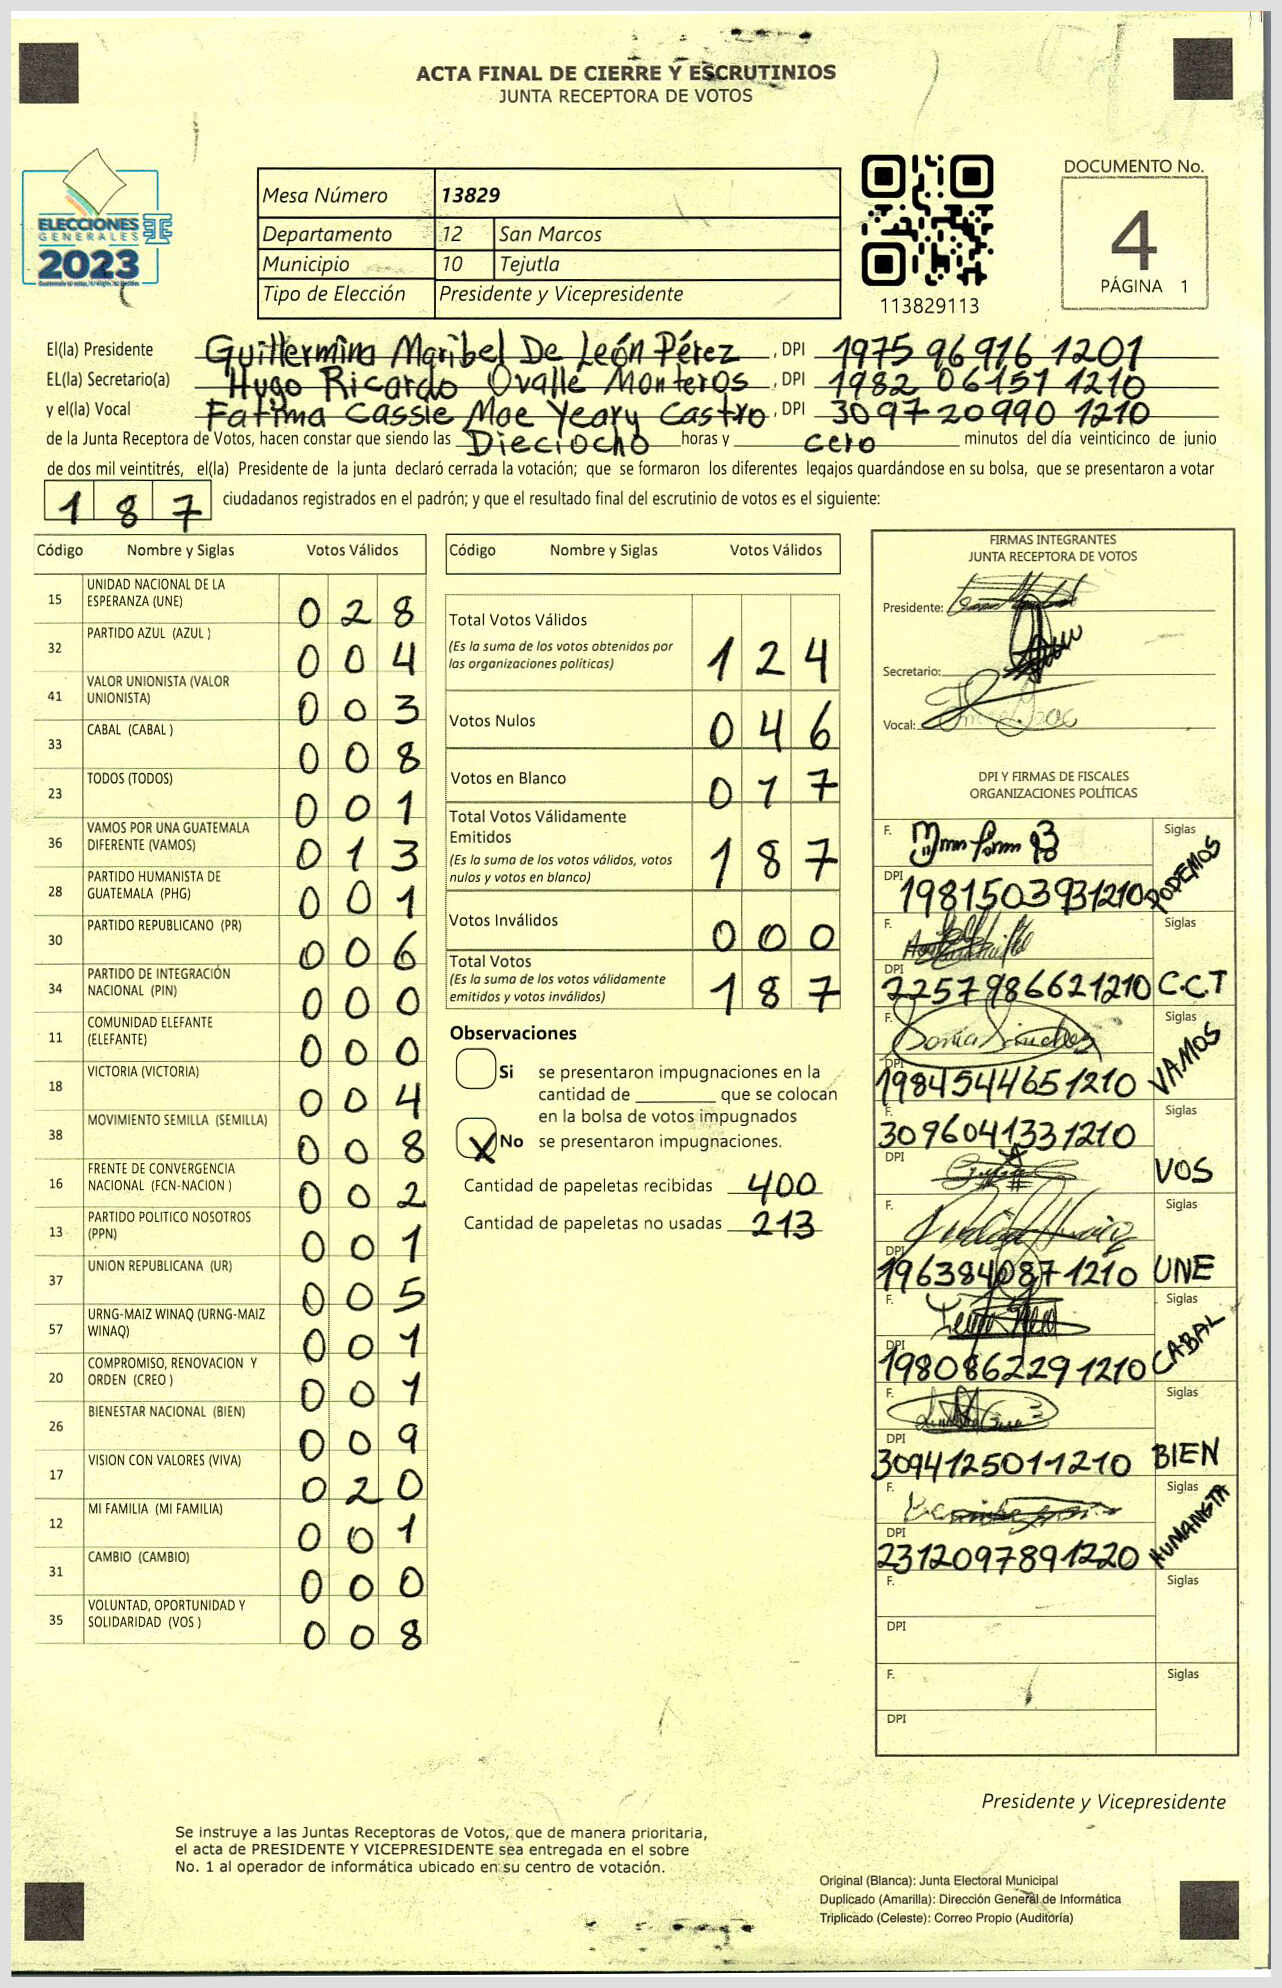 ACTA FINAL DE CIERRE Y ESCRUTINIOS
JUNTA RECEPTORA DE VOTOS
ELECCIONES
GENERALES
2023
Mesa Número 13829
Departamento 12 San Marcos
Municipio 10 Tejutla
Tipo de Elección Presidente y Vicepresidente
113829113
DOCUMENTO No.
4
PÁGINA 1
El(la) Presidente Guillermina Maribel De León Pérez, DPI 1975 96916 1201
EL(la) Secretario(a) Hugo Ricardo Ovalle Monteros, DPI 1982 06151 1210
y el(la) Vocal Fatima Cassie Mae Yeary Castro, DPI 3097 20990 1210
de la Junta Receptora de Votos, hacen constar que siendo las Dieciocho horas y cero minutos del día veinticinco de junio
de dos mil veintitrés, el(la) Presidente de la junta declaró cerrada la votación; que se formaron los diferentes legajos guardándose en su bolsa, que se presentaron a votar
187 ciudadanos registrados en el padrón; y que el resultado final del escrutinio de votos es el siguiente:
Código Nombre y Siglas Votos Válidos
15 UNIDAD NACIONAL DE LA ESPERANZA (UNE) 028
32 PARTIDO AZUL (AZUL ) 004
41 VALOR UNIONISTA (VALOR UNIONISTA) 003
33 CABAL (CABAL ) 008
23 TODOS (TODOS) 001
36 VAMOS POR UNA GUATEMALA DIFERENTE (VAMOS) 013
28 PARTIDO HUMANISTA DE GUATEMALA (PHG) 001
30 PARTIDO REPUBLICANO (PR) 006
34 PARTIDO DE INTEGRACIÓN NACIONAL (PIN) 000
11 COMUNIDAD ELEFANTE (ELEFANTE) 000
18 VICTORIA (VICTORIA) 004
38 MOVIMIENTO SEMILLA (SEMILLA) 008
16 FRENTE DE CONVERGENCIA NACIONAL (FCN-NACION ) 002
13 PARTIDO POLITICO NOSOTROS (PPN) 001
37 UNION REPUBLICANA (UR) 005
57 URNG-MAIZ WINAQ (URNG-MAIZ WINAQ) 001
20 COMPROMISO, RENOVACION Y ORDEN (CREO ) 001
26 BIENESTAR NACIONAL (BIEN) 009
17 VISION CON VALORES (VIVA) 020
12 MI FAMILIA (MI FAMILIA) 001
31 CAMBIO (CAMBIO) 000
35 VOLUNTAD, OPORTUNIDAD Y SOLIDARIDAD (VOS ) 008
Código Nombre y Siglas Votos Válidos
Total Votos Válidos
(Es la suma de los votos obtenidos por
las organizaciones políticas) 124
Votos Nulos 046
Votos en Blanco 017
Total Votos Válidamente
Emitidos
(Es la suma de los votos válidos, votos
nulos y votos en blanco) 187
Votos Inválidos 000
Total Votos
(Es la suma de los votos válidamente
emitidos y votos inválidos) 187
Observaciones
Si se presentaron impugnaciones en la
cantidad de ________ que se colocan
en la bolsa de votos impugnados
X No se presentaron impugnaciones.
Cantidad de papeletas recibidas 400
Cantidad de papeletas no usadas 213
FIRMAS INTEGRANTES
JUNTA RECEPTORA DE VOTOS
Presidente:
Secretario:
Vocal:
DPI Y FIRMAS DE FISCALES
ORGANIZACIONES POLÍTICAS
F. Siglas
DPI 1981503931210 PODEMOS
F. Siglas
DPI 2257986621210 C.C.T
F. Sonia Sánchez Siglas
DPI 1984544651210 VAMOS
F. 3096041331210 Siglas
DPI VOS
F. Siglas
DPI 1963840871210 UNE
F. Siglas
DPI 1980862291210 CABAL
F. Siglas
DPI 3094125011210 BIEN
F. Siglas
DPI 2312097891220 HUMANISTA
F. Siglas
DPI
F. Siglas
DPI
Presidente y Vicepresidente
Se instruye a las Juntas Receptoras de Votos, que de manera prioritaria,
el acta de PRESIDENTE Y VICEPRESIDENTE sea entregada en el sobre
No. 1 al operador de informática ubicado en su centro de votación.
Original (Blanca): Junta Electoral Municipal
Duplicado (Amarilla): Dirección General de Informática
Triplicado (Celeste): Correo Propio (Auditoría)